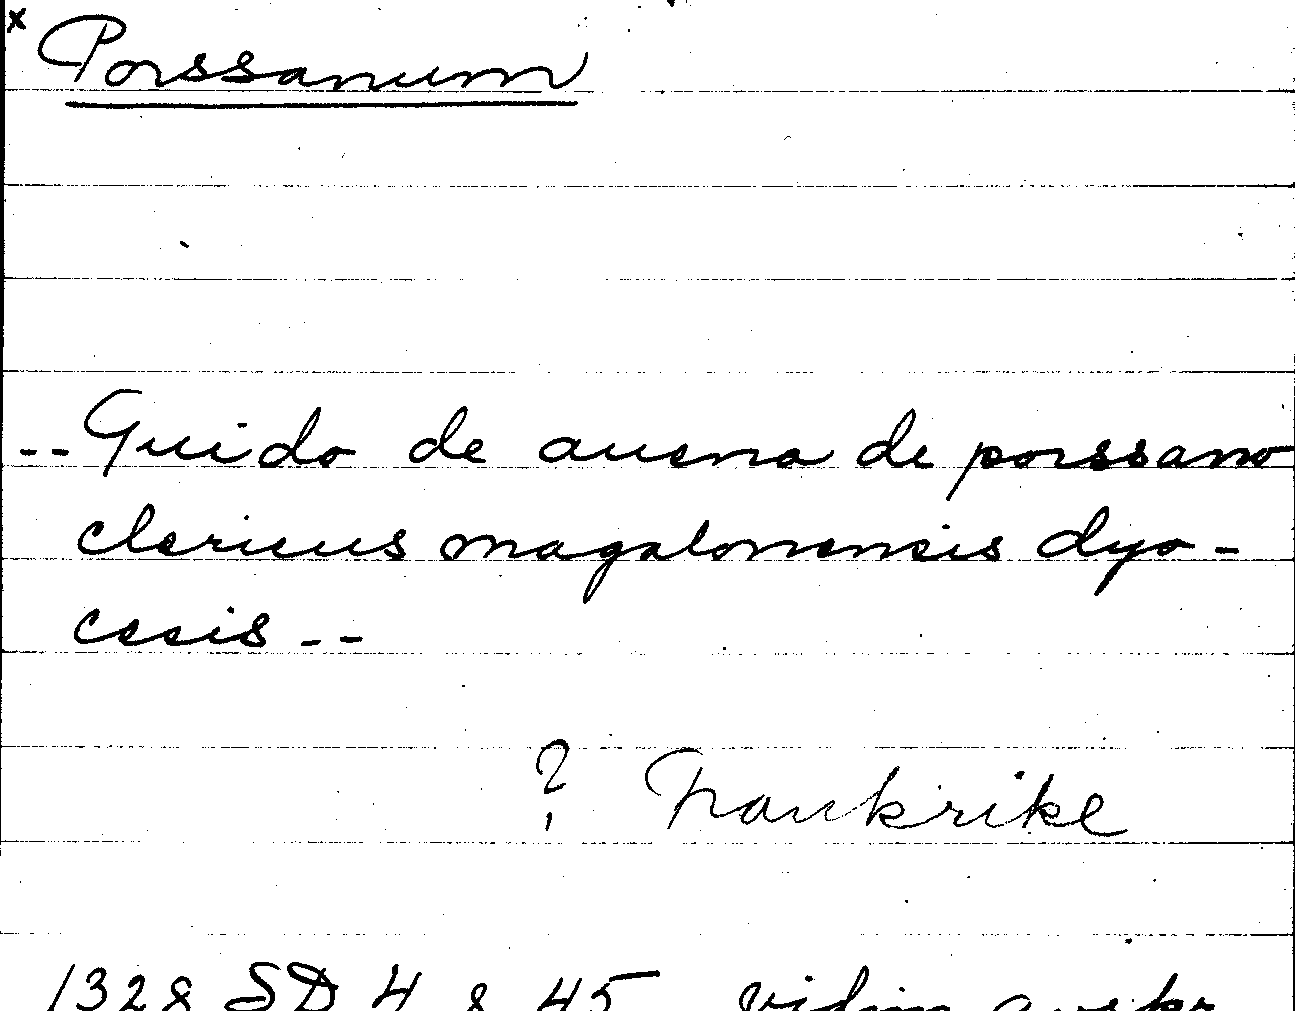 x Porssanum
-- Guido de auena de porssano
clericus magalonensis dyo-
cesis --
? Frankrike
1328 SD 4 s 45 vidim avskr